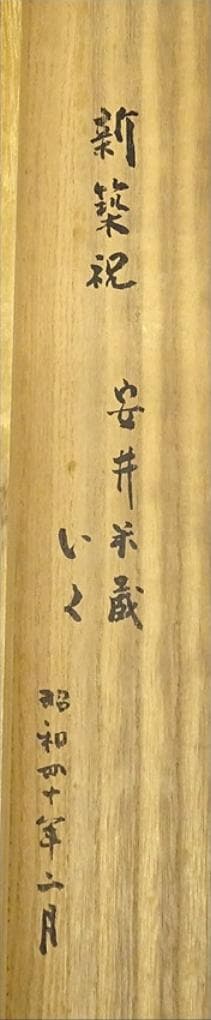 新築祝
安井米蔵
いく
昭和四十年二月